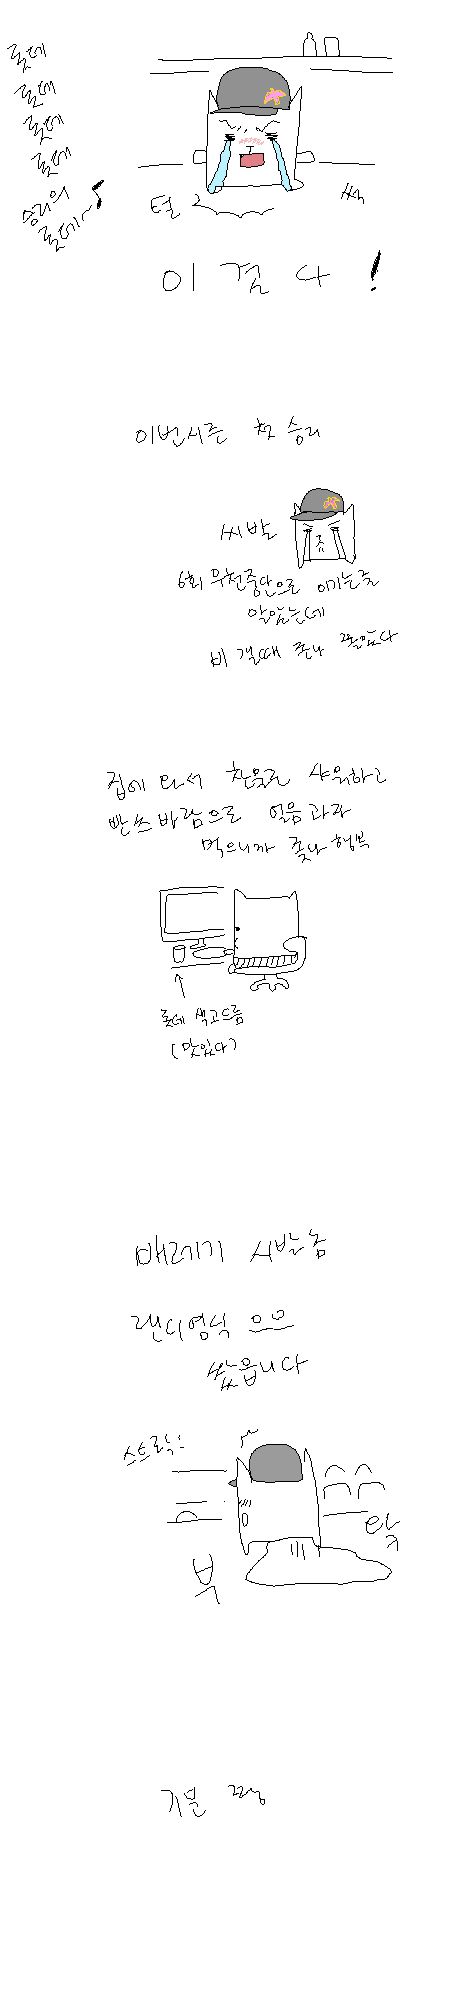 롯데
롯데
롯데
롯데
승리의
롯데~♪
털
이겼다!
이번시즌 첫 승리
씨발
6회 우천중단으로 이기는줄
알았는데
비 갤때 존나 쫄았다
집에 와서 찬물로 샤워하고
빤쓰바람으로 얼음과자
먹으니까 좆나 행복
↑
롯데 색고드름
(맛있다)
매레기 시발놈
랜디영식 으으
쌌읍니다
스트락!
부
탁
기분 짱